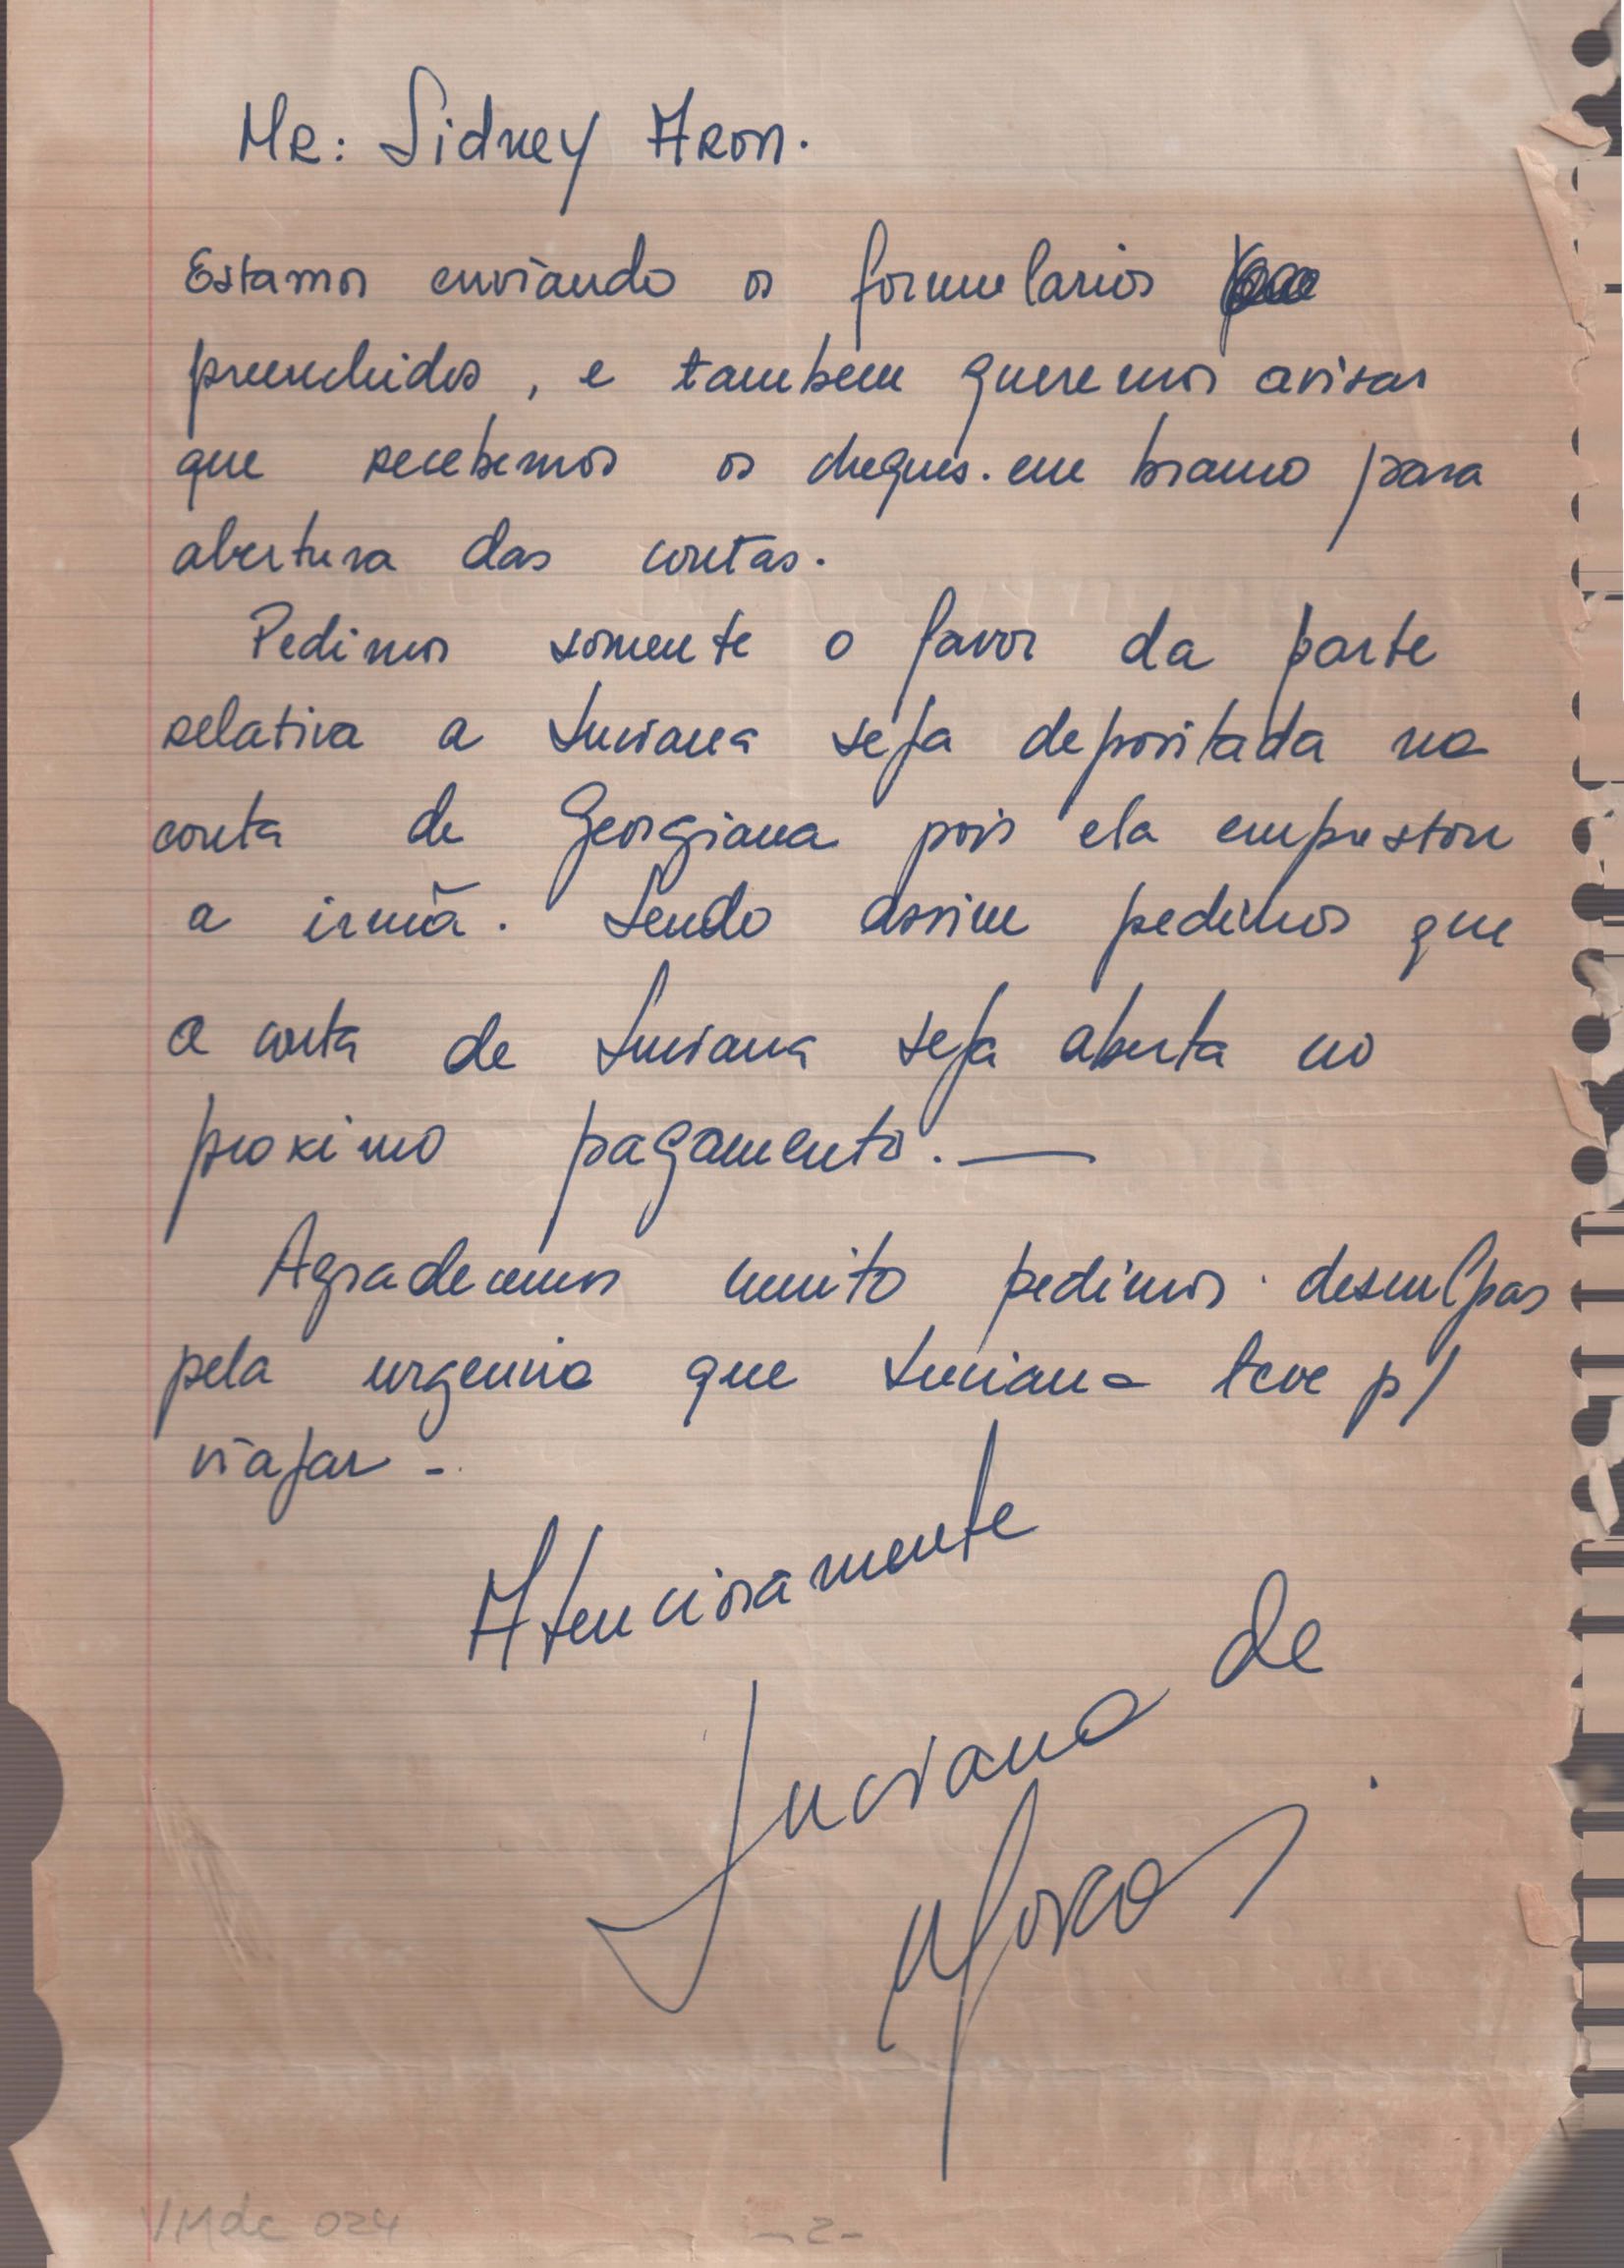 MR: Sidney Aron.
Estamos enviando os formularios
preenchidos, e tambem queremos avisar
que recebemos os cheques. em branco para
abertura das contas.
Pedimos somente o favor da parte
relativa a Luciana seja depositada na
conta de Georgiana pois ela emprestou
a irmã. Sendo assim pedimos que
a conta de Luciana seja aberta no
proximo pagamento. —
Agradecemos muito pedimos desculpas
pela urgencia que Luciana teve p/
viajar -
Atenciosamente
Luciana de
Moraes
VMdc 024
- 2 -